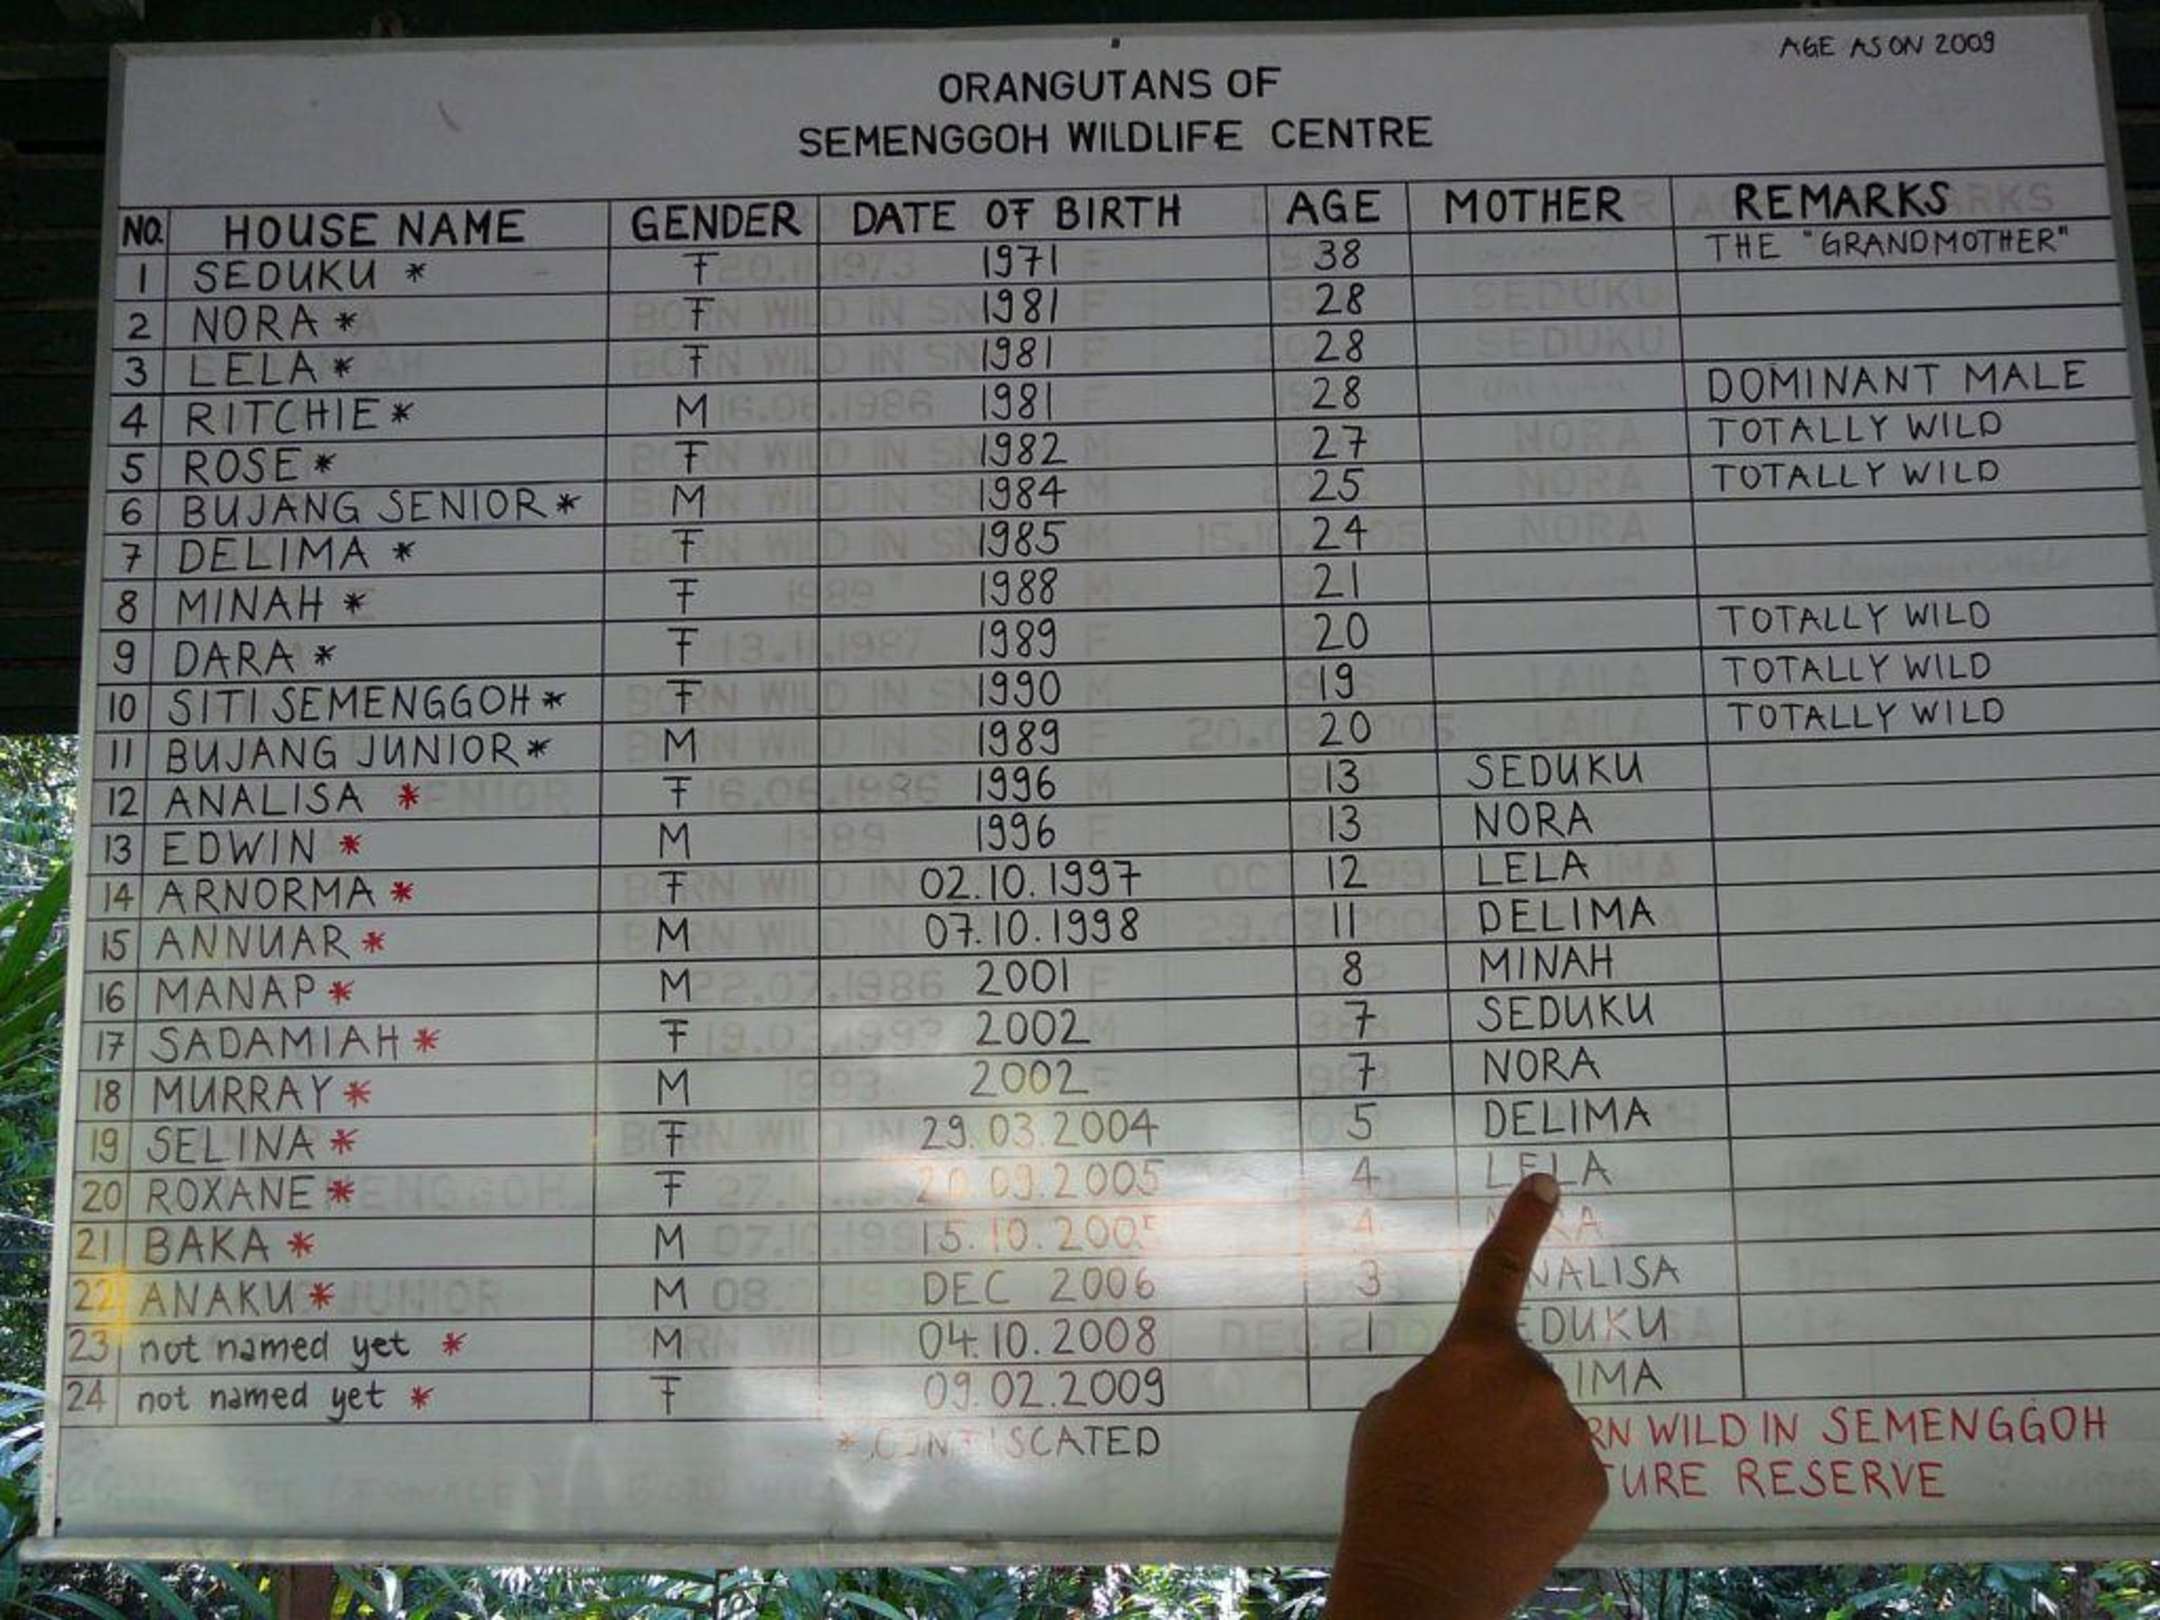 AGE AS ON 2009
ORANGUTANS OF
SEMENGGOH WILDLIFE CENTRE
NO. HOUSE NAME GENDER DATE OF BIRTH AGE MOTHER REMARKS
1 SEDUKU * F 1971 38 THE "GRANDMOTHER"
2 NORA * F 1981 28
3 LELA * F 1981 28
4 RITCHIE * M 1981 28 DOMINANT MALE
5 ROSE * F 1982 27 TOTALLY WILD
6 BUJANG SENIOR * M 1984 25 TOTALLY WILD
7 DELIMA * F 1985 24
8 MINAH * F 1988 21
9 DARA * F 1989 20 TOTALLY WILD
10 SITI SEMENGGOH * F 1990 19 TOTALLY WILD
11 BUJANG JUNIOR * M 1989 20 TOTALLY WILD
12 ANALISA * F 1996 13 SEDUKU
13 EDWIN * M 1996 13 NORA
14 ARNORMA * F 02.10.1997 12 LELA
15 ANNUAR * M 07.10.1998 11 DELIMA
16 MANAP * M 2001 8 MINAH
17 SADAMIAH * F 2002 7 SEDUKU
18 MURRAY * M 2002 7 NORA
19 SELINA * F 29.03.2004 5 DELIMA
20 ROXANE * F 20.09.2005 4 LELA
21 BAKA * M 15.10.2005 4
22 ANAKU * M DEC 2006 3 NALISA
23 not named yet * M 04.10.2008 1 EDUKU
24 not named yet * F 09.02.2009 IMA
* CONFISCATED
RN WILD IN SEMENGGOH
TURE RESERVE